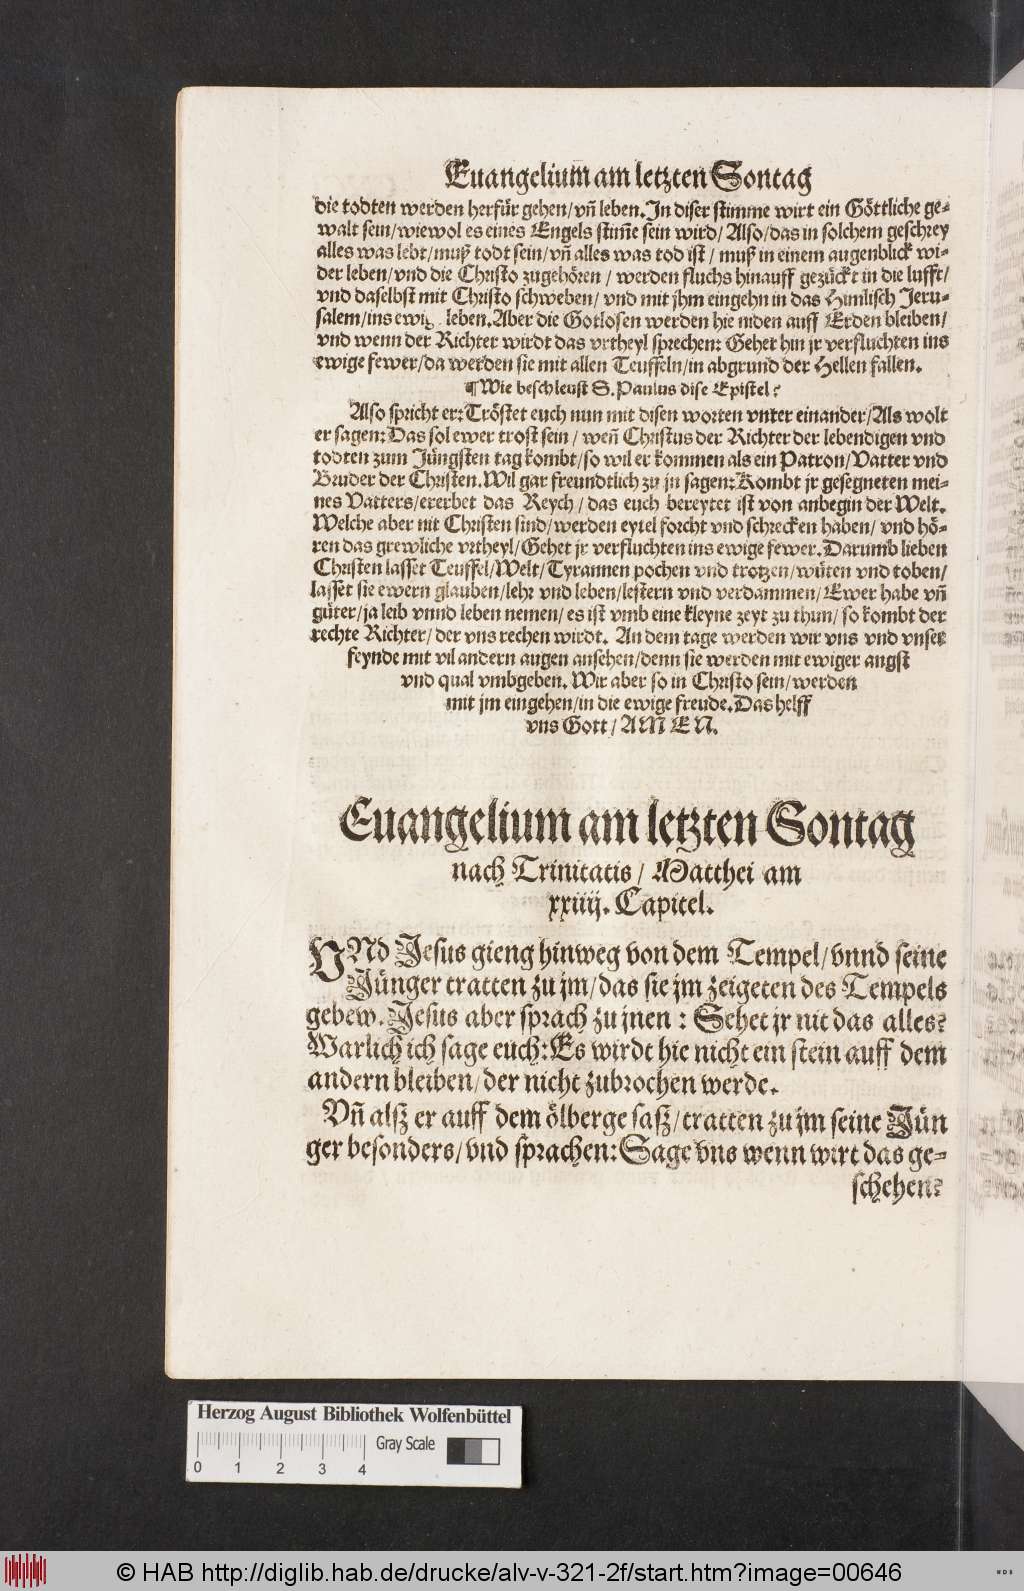 Euangelium am letzten Sontag
die todten werden herfür gehen/ vñ leben. In diser stimme wirt ein Göttliche ge-
walt sein/ wiewol es eines Engels stim̃e sein wird/ Also/ das in solchem geschrey
alles was lebt/ muß todt sein/ vñ alles was tod ist/ muß in einem augenblick wi-
der leben/ vnd die Christo zugehören/ werden fluchs hinauff gezückt in die lufft/
vnd daselbst mit Christo schweben/ vnd mit jhm eingehn in das Himlisch Jeru-
salem/ ins ewig leben. Aber die Gotlosen werden hie niden auff Erden bleiben/
vnd wenn der Richter wirdt das vrtheyl sprechen: Gehet hin jr verfluchten ins
ewige fewer/ da werden sie mit allen Teuffeln/ in abgrund der Hellen fallen.
¶ Wie beschleust S. Paulus dise Epistel?
Also spricht er: Tröstet euch nun mit disen worten vnter einander/ Als wolt
er sagen: Das sol ewer trost sein/ weñ Christus der Richter der lebendigen vnd
todten zum Jüngsten tag kombt/ so wil er kommen als ein Patron/ Vatter vnd
Bruder der Christen. Wil gar freundtlich zu jn sagen: Kombt jr gesegneten mei-
nes Vatters/ ererbet das Reych/ das euch bereytet ist von anbegin der Welt.
Welche aber nit Christen sind/ werden eytel forcht vnd schrecken haben/ vnd hö-
ren das grewliche vrtheyl/ Gehet jr verfluchten ins ewige fewer. Darumb lieben
Christen lasset Teuffel/ Welt/ Tyrannen pochen vnd trotzen/ wüten vnd toben/
lasset sie ewern glauben/ lehr vnd leben/ lestern vnd verdammen/ Ewer habe vñ
güter/ ja leib vnnd leben nemen/ es ist vmb eine kleyne zeyt zu thun/ so kombt der
rechte Richter/ der vns rechen wirdt. An dem tage werden wir vns vnd vnser
feynde mit vil andern augen ansehen/ denn sie werden mit ewiger angst
vnd qual vmbgeben. Wir aber so in Christo sein/ werden
mit jm eingehen/ in die ewige freude. Das helff
vns Gott/ AMEN.
Euangelium am letzten Sontag
nach Trinitatis/ Matthei am
xxiiij. Capitel.
VNd Jesus gieng hinweg von dem Tempel/ vnnd seine
Jünger tratten zu jm/ das sie jm zeigeten des Tempels
gebew. Jesus aber sprach zu jnen: Sehet jr nit das alles?
Warlich ich sage euch: Es wirdt hie nicht ein stein auff dem
andern bleiben/ der nicht zubrochen werde.
Vñ alsz er auff dem ölberge sasz/ tratten zu jm seine Jün
ger besonders/ vnd sprachen: Sage vns wenn wirt das ge-
schehen?
Herzog August Bibliothek Wolfenbüttel
Gray Scale
0 1 2 3 4
© HAB http://diglib.hab.de/drucke/alv-v-321-2f/start.htm?image=00646